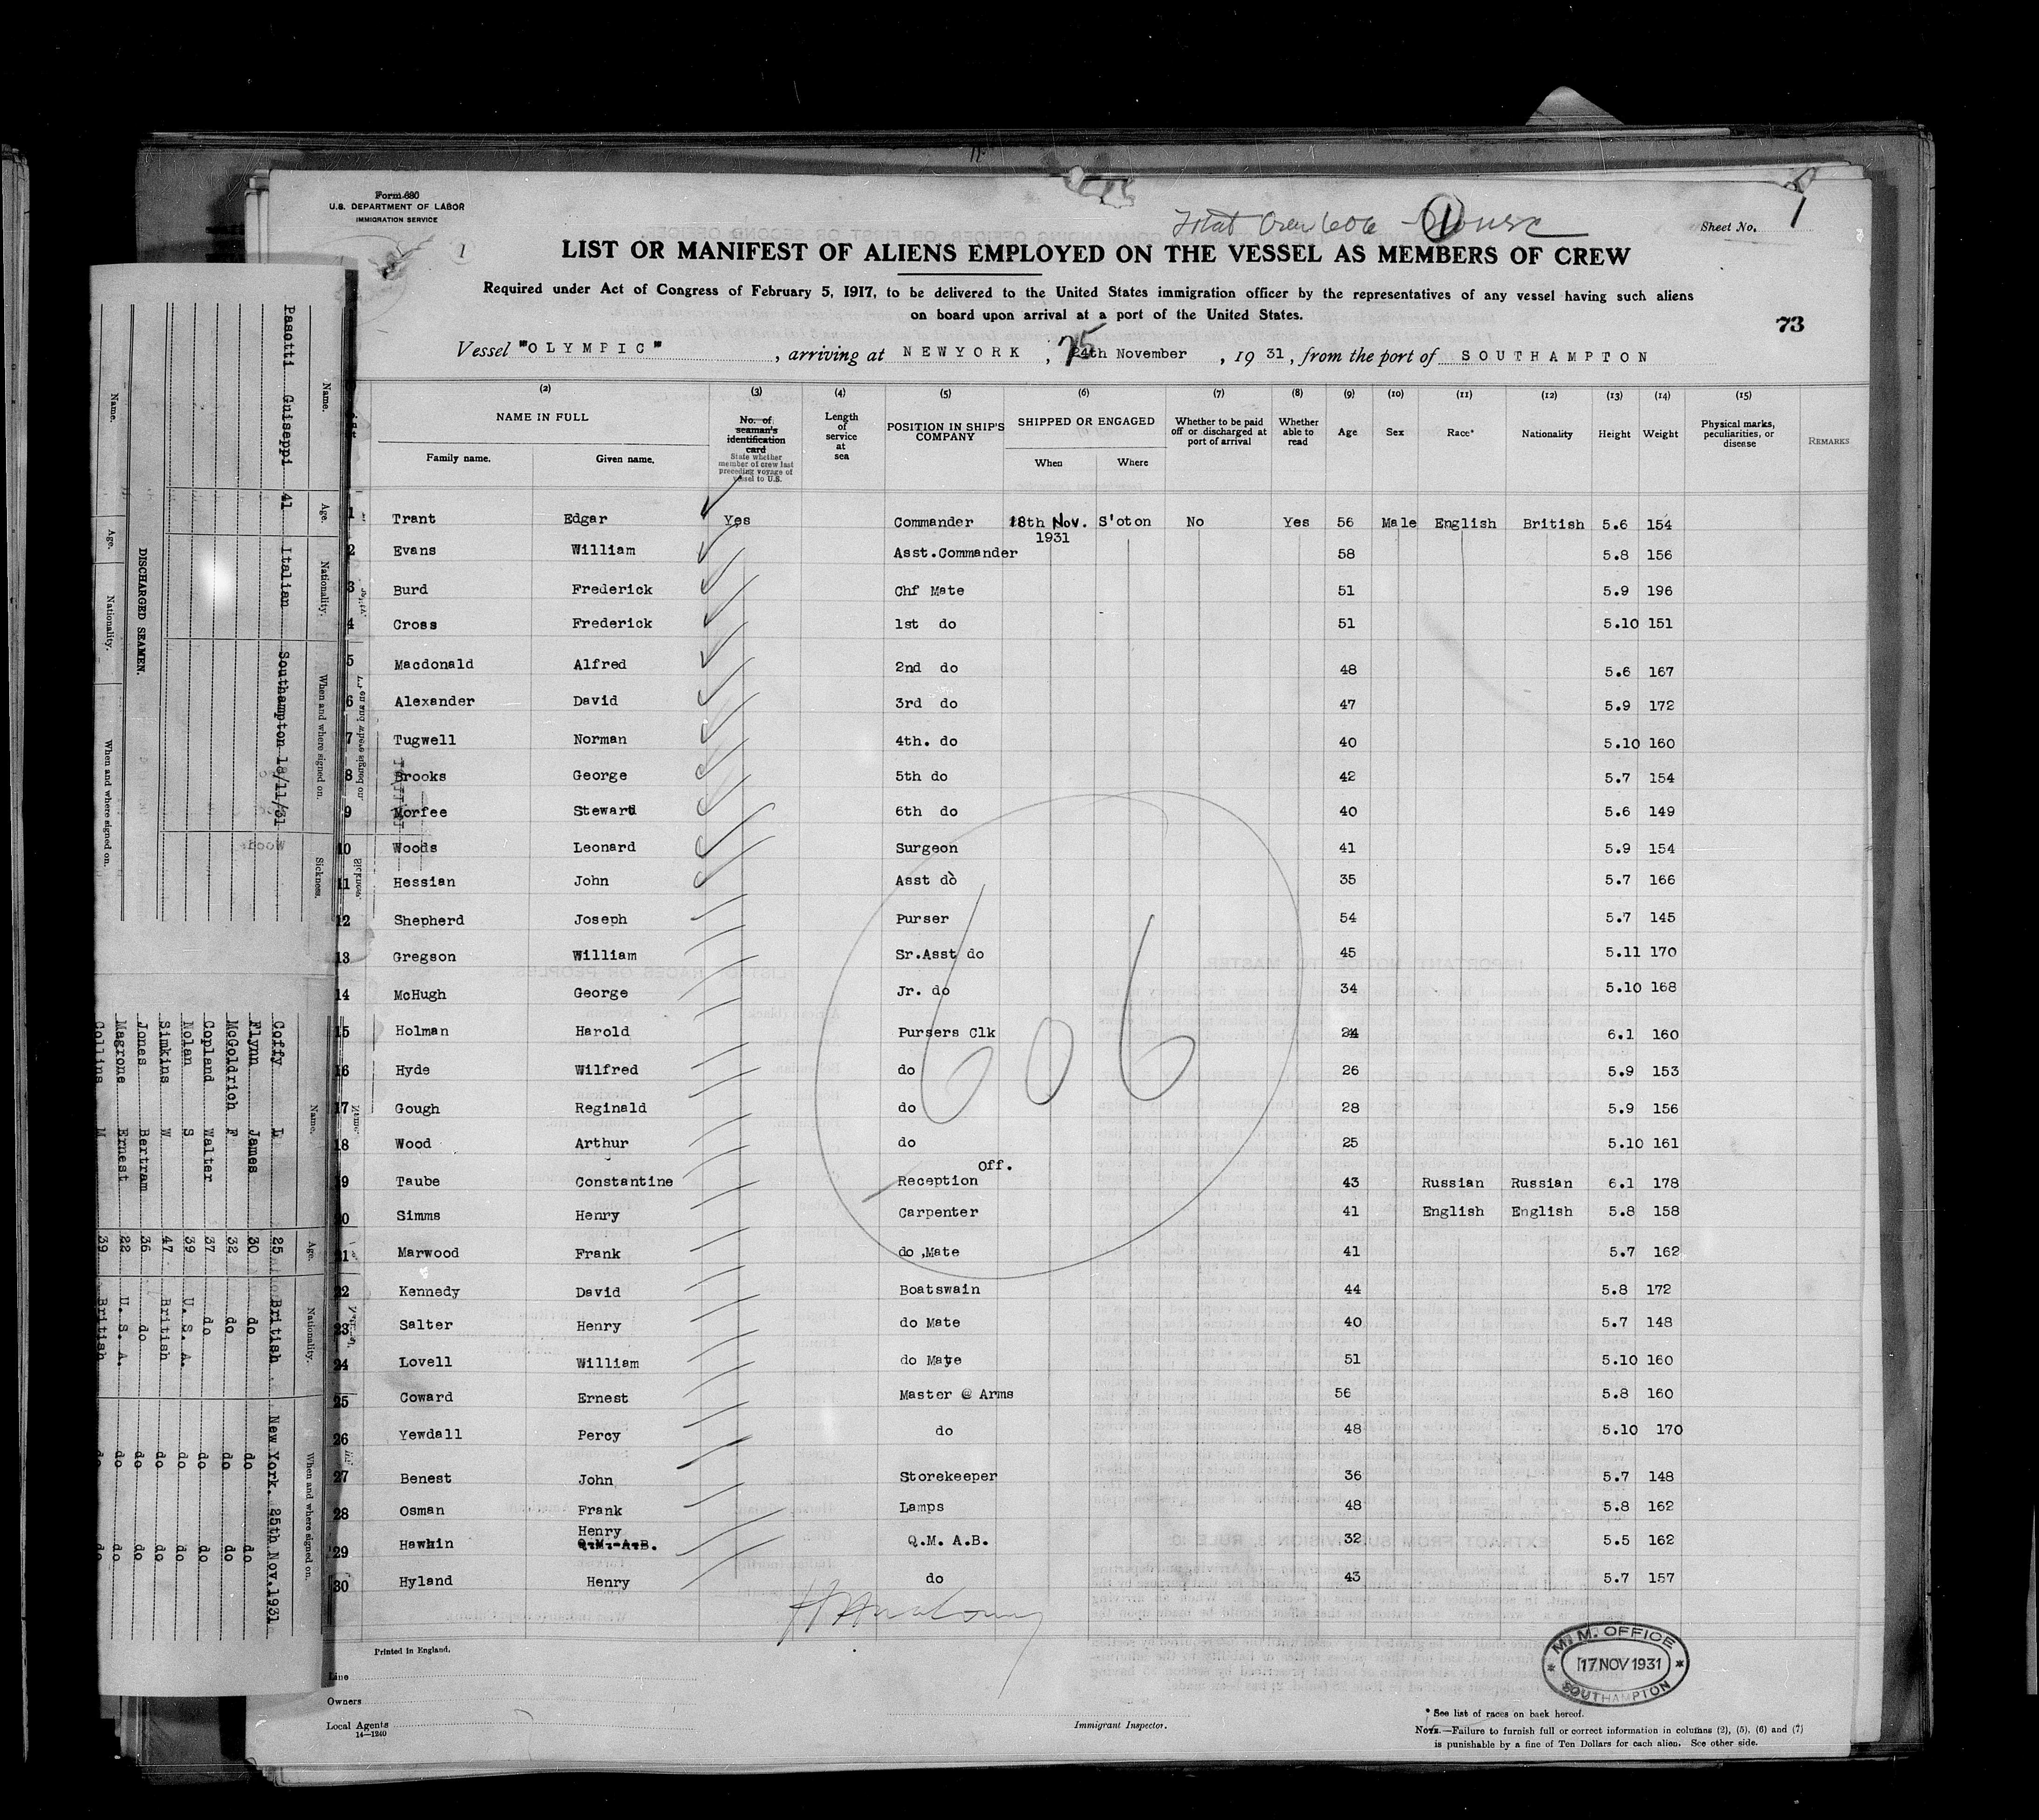 Form 680
U.S. DEPARTMENT OF LABOR
IMMIGRATION SERVICE
1
Total Crew 606
1
Sheet No. 1
LIST OR MANIFEST OF ALIENS EMPLOYED ON THE VESSEL AS MEMBERS OF CREW
Required under Act of Congress of February 5, 1917, to be delivered to the United States immigration officer by the representatives of any vessel having such aliens
on board upon arrival at a port of the United States.
73
Vessel "OLYMPIC", arriving at NEWYORK, 24th November, 1931, from the port of SOUTHAMPTON
25
(2) (3) (4) (5) (6) (7) (8) (9) (10) (11) (12) (13) (14) (15)
NAME IN FULL No. of seaman's identification card State whether member of crew last preceding voyage of vessel to U.S. Length of service at sea POSITION IN SHIP'S COMPANY SHIPPED OR ENGAGED Whether to be paid off or discharged at port of arrival Whether able to read Age Sex Race* Nationality Height Weight Physical marks, peculiarities, or disease REMARKS
Family name. Given name. When Where
1 Trant Edgar Yes Commander 18th Nov. 1931 S'oton No Yes 56 Male English British 5.6 154
2 Evans William Asst.Commander 58 5.8 156
3 Burd Frederick Chf Mate 51 5.9 196
4 Cross Frederick 1st do 51 5.10 151
5 Macdonald Alfred 2nd do 48 5.6 167
6 Alexander David 3rd do 47 5.9 172
7 Tugwell Norman 4th. do 40 5.10 160
8 Brooks George 5th do 42 5.7 154
9 Morfee Steward 6th do 40 5.6 149
10 Woods Leonard Surgeon 41 5.9 154
11 Hessian John Asst do 35 5.7 166
12 Shepherd Joseph Purser 54 5.7 145
13 Gregson William Sr.Asst do 45 5.11 170
14 McHugh George Jr. do 34 5.10 168
15 Holman Harold Pursers Clk 24 6.1 160
16 Hyde Wilfred do 26 5.9 153
17 Gough Reginald do 28 5.9 156
18 Wood Arthur do 25 5.10 161
19 Taube Constantine Reception Off. 43 Russian Russian 6.1 178
20 Simms Henry Carpenter 41 English English 5.8 158
21 Marwood Frank do ,Mate 41 5.7 162
22 Kennedy David Boatswain 44 5.8 172
23 Salter Henry do Mate 40 5.7 148
24 Lovell William do Mate 51 5.10 160
25 Coward Ernest Master @ Arms 56 5.8 160
26 Yewdall Percy do 48 5.10 170
27 Benest John Storekeeper 36 5.7 148
28 Osman Frank Lamps 48 5.8 162
29 Hawkin Henry Q.M. A.B. Q.M. A.B. 32 5.5 162
30 Hyland Henry do 43 5.7 157
606
Printed in England.
Line
Owners
Local Agents
14—1240
Immigrant Inspector.
M. M. OFFICE
17 NOV 1931
SOUTHAMPTON
* See list of races on back hereof.
NOTE.—Failure to furnish full or correct information in columns (2), (5), (6) and (7)
is punishable by a fine of Ten Dollars for each alien. See other side.
Name. Age. Nationality. When and where signed on. Sickness.
Pasotti Guiseppi 41 Italian Southampton 18/11/31
DISCHARGED SEAMEN.
Name. Age. Nationality. When and where signed on.
Name. Age. Nationality. When and where signed on.
Coffy L 25 British New York. 25th Nov.1931
Flynn James 30 do do do
McGoldrich F 32 do do do
Copland Walter 37 do do do
Nolan S 39 U.S.A. do do
Simkins W 47 British do do
Jones Bertram 36 do do do
Magrone Ernest 22 U.S.A. do do
Collins M 39 British do do